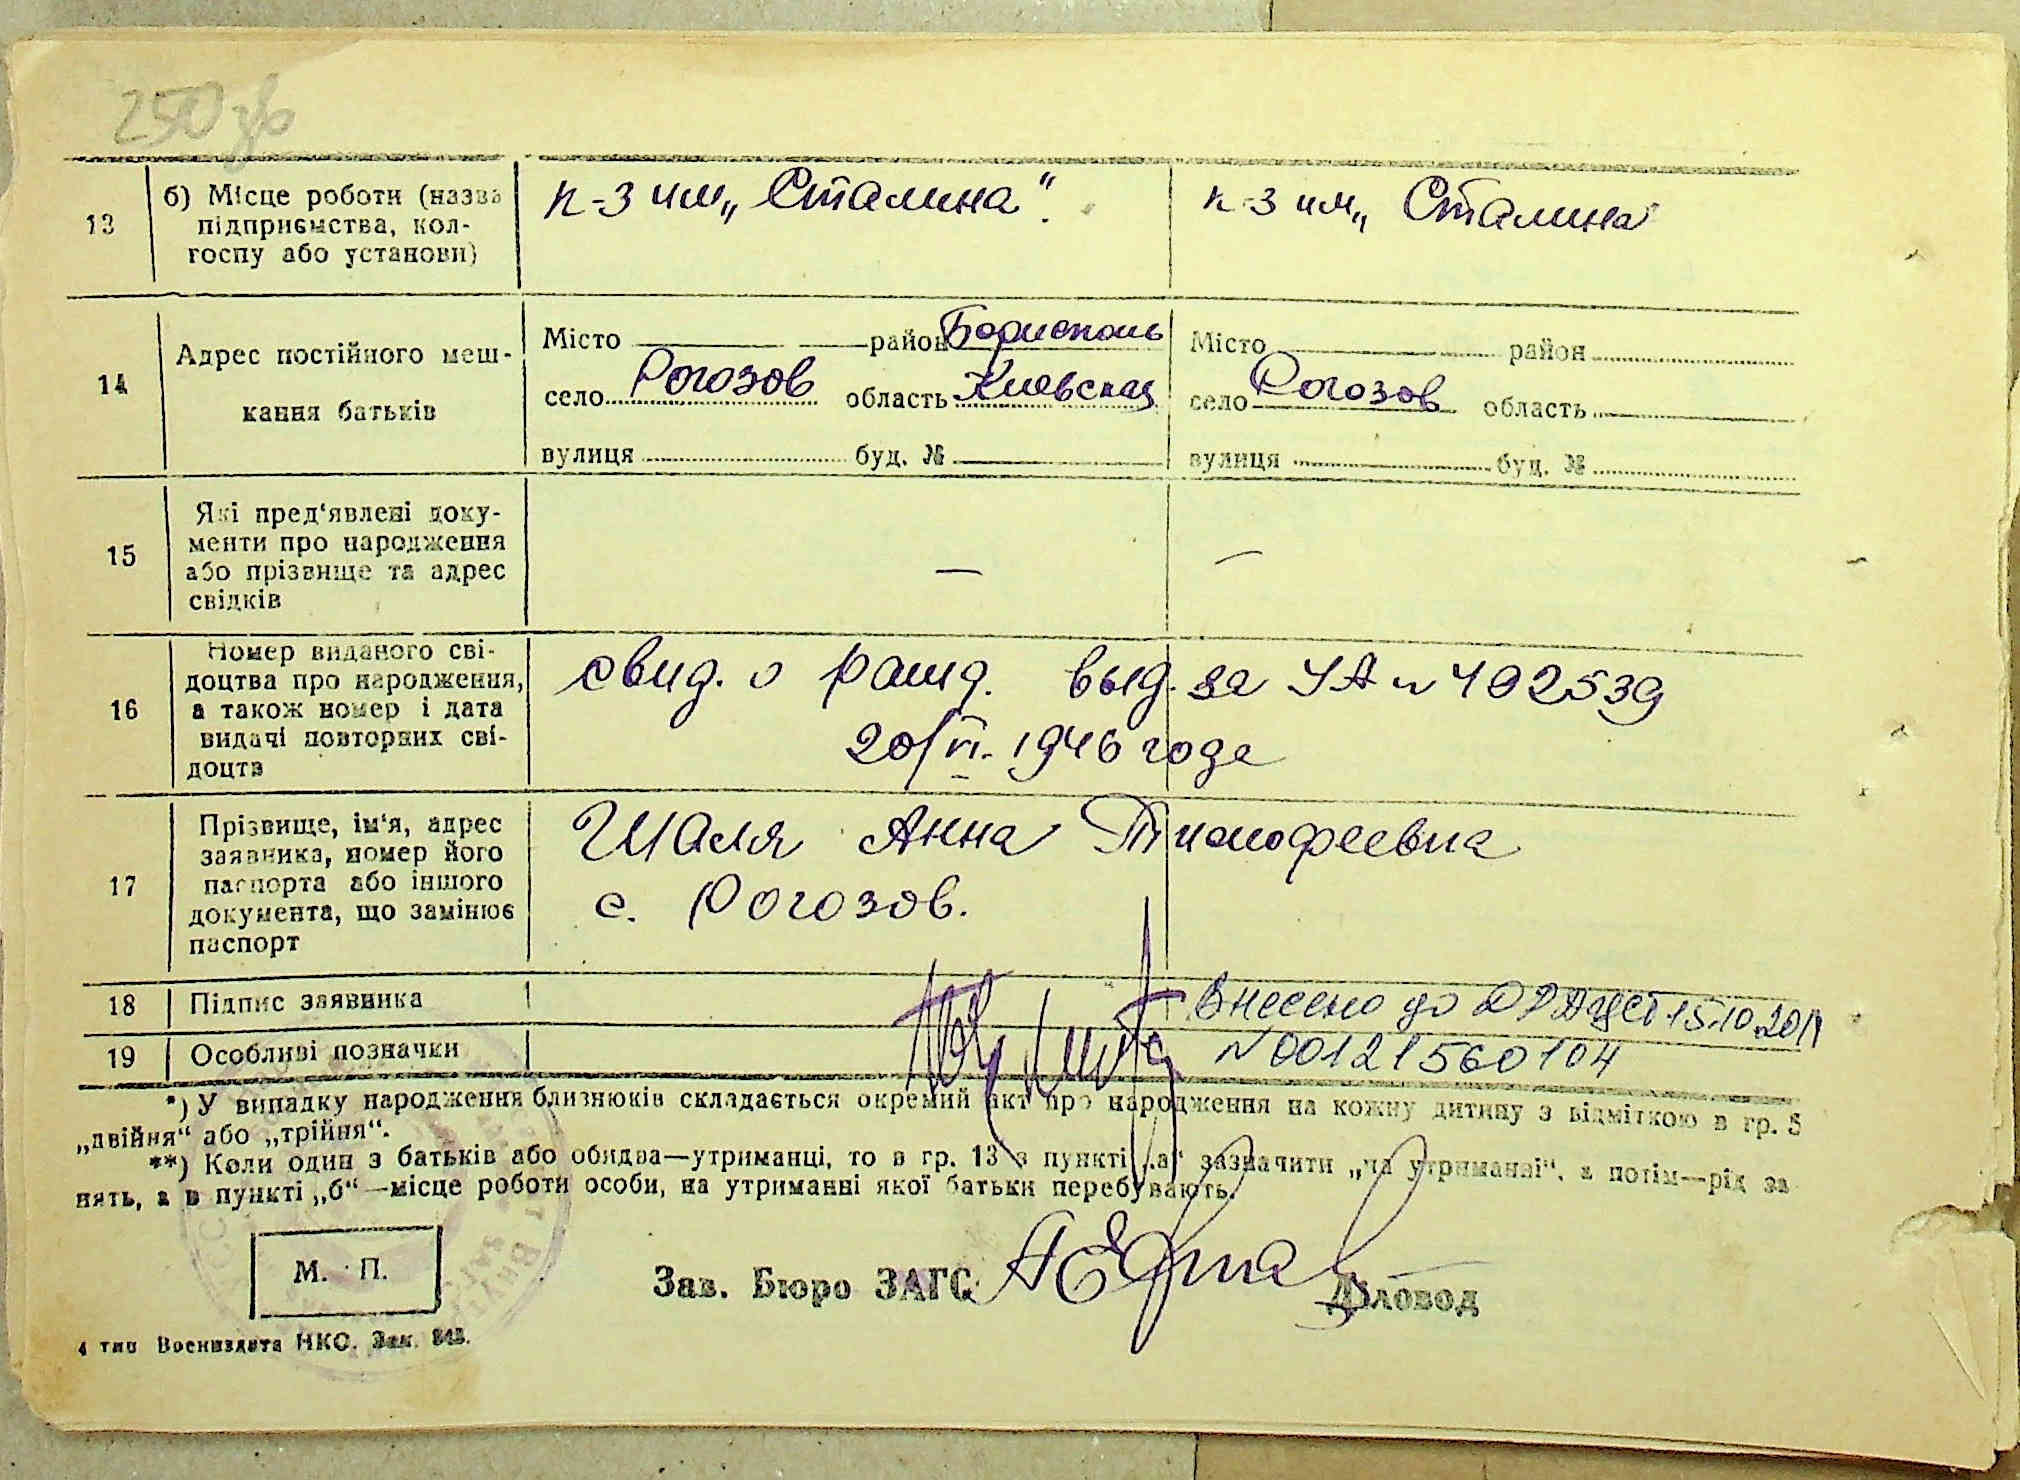 250 зв
13 б) Місце роботи (назва підприємства, колгоспу або установи)
к-з им „Сталина“.
к-з им „Сталина
14 Адрес постійного мешкання батьків
Місто район Борисполь
село Рогозов область Киевская
вулиця буд. №
Місто район
село Рогозов область
вулиця буд. №
15 Які пред'явлені доку-
менти про народження
або прізвище та адрес
свідків
— —
16 Номер виданого сві-
доцтва про народження,
а також номер і дата
видачі повторних сві-
доцтв
свид. о рожд. выд. за УА № 402539
20/VI. 1946 года
17 Прізвище, ім'я, адрес
заявника, номер його
паспорта або іншого
документа, що замінює
паспорт
Шаля Анна Тимофеевна
с. Рогозов.
18 Підпис заявника
Внесено до 15.10.2011
19 Особливі позначки
N 00121560104
*) У випадку народження близнюків складається окремий акт про народження на кожну дитину з відміткою в гр. 5
„двійня“ або „трійня“.
**) Коли один з батьків або обидва—утриманці, то в гр. 13 в пункті „а“ зазначити „на утриманні“, а потім—рід за
нять, а в пункті „б“—місце роботи особи, на утриманні якої батьки перебувають.
М. П.
Зав. Бюро ЗАГС Діловод
4 тип Воениздата НКО. Зак. 843.